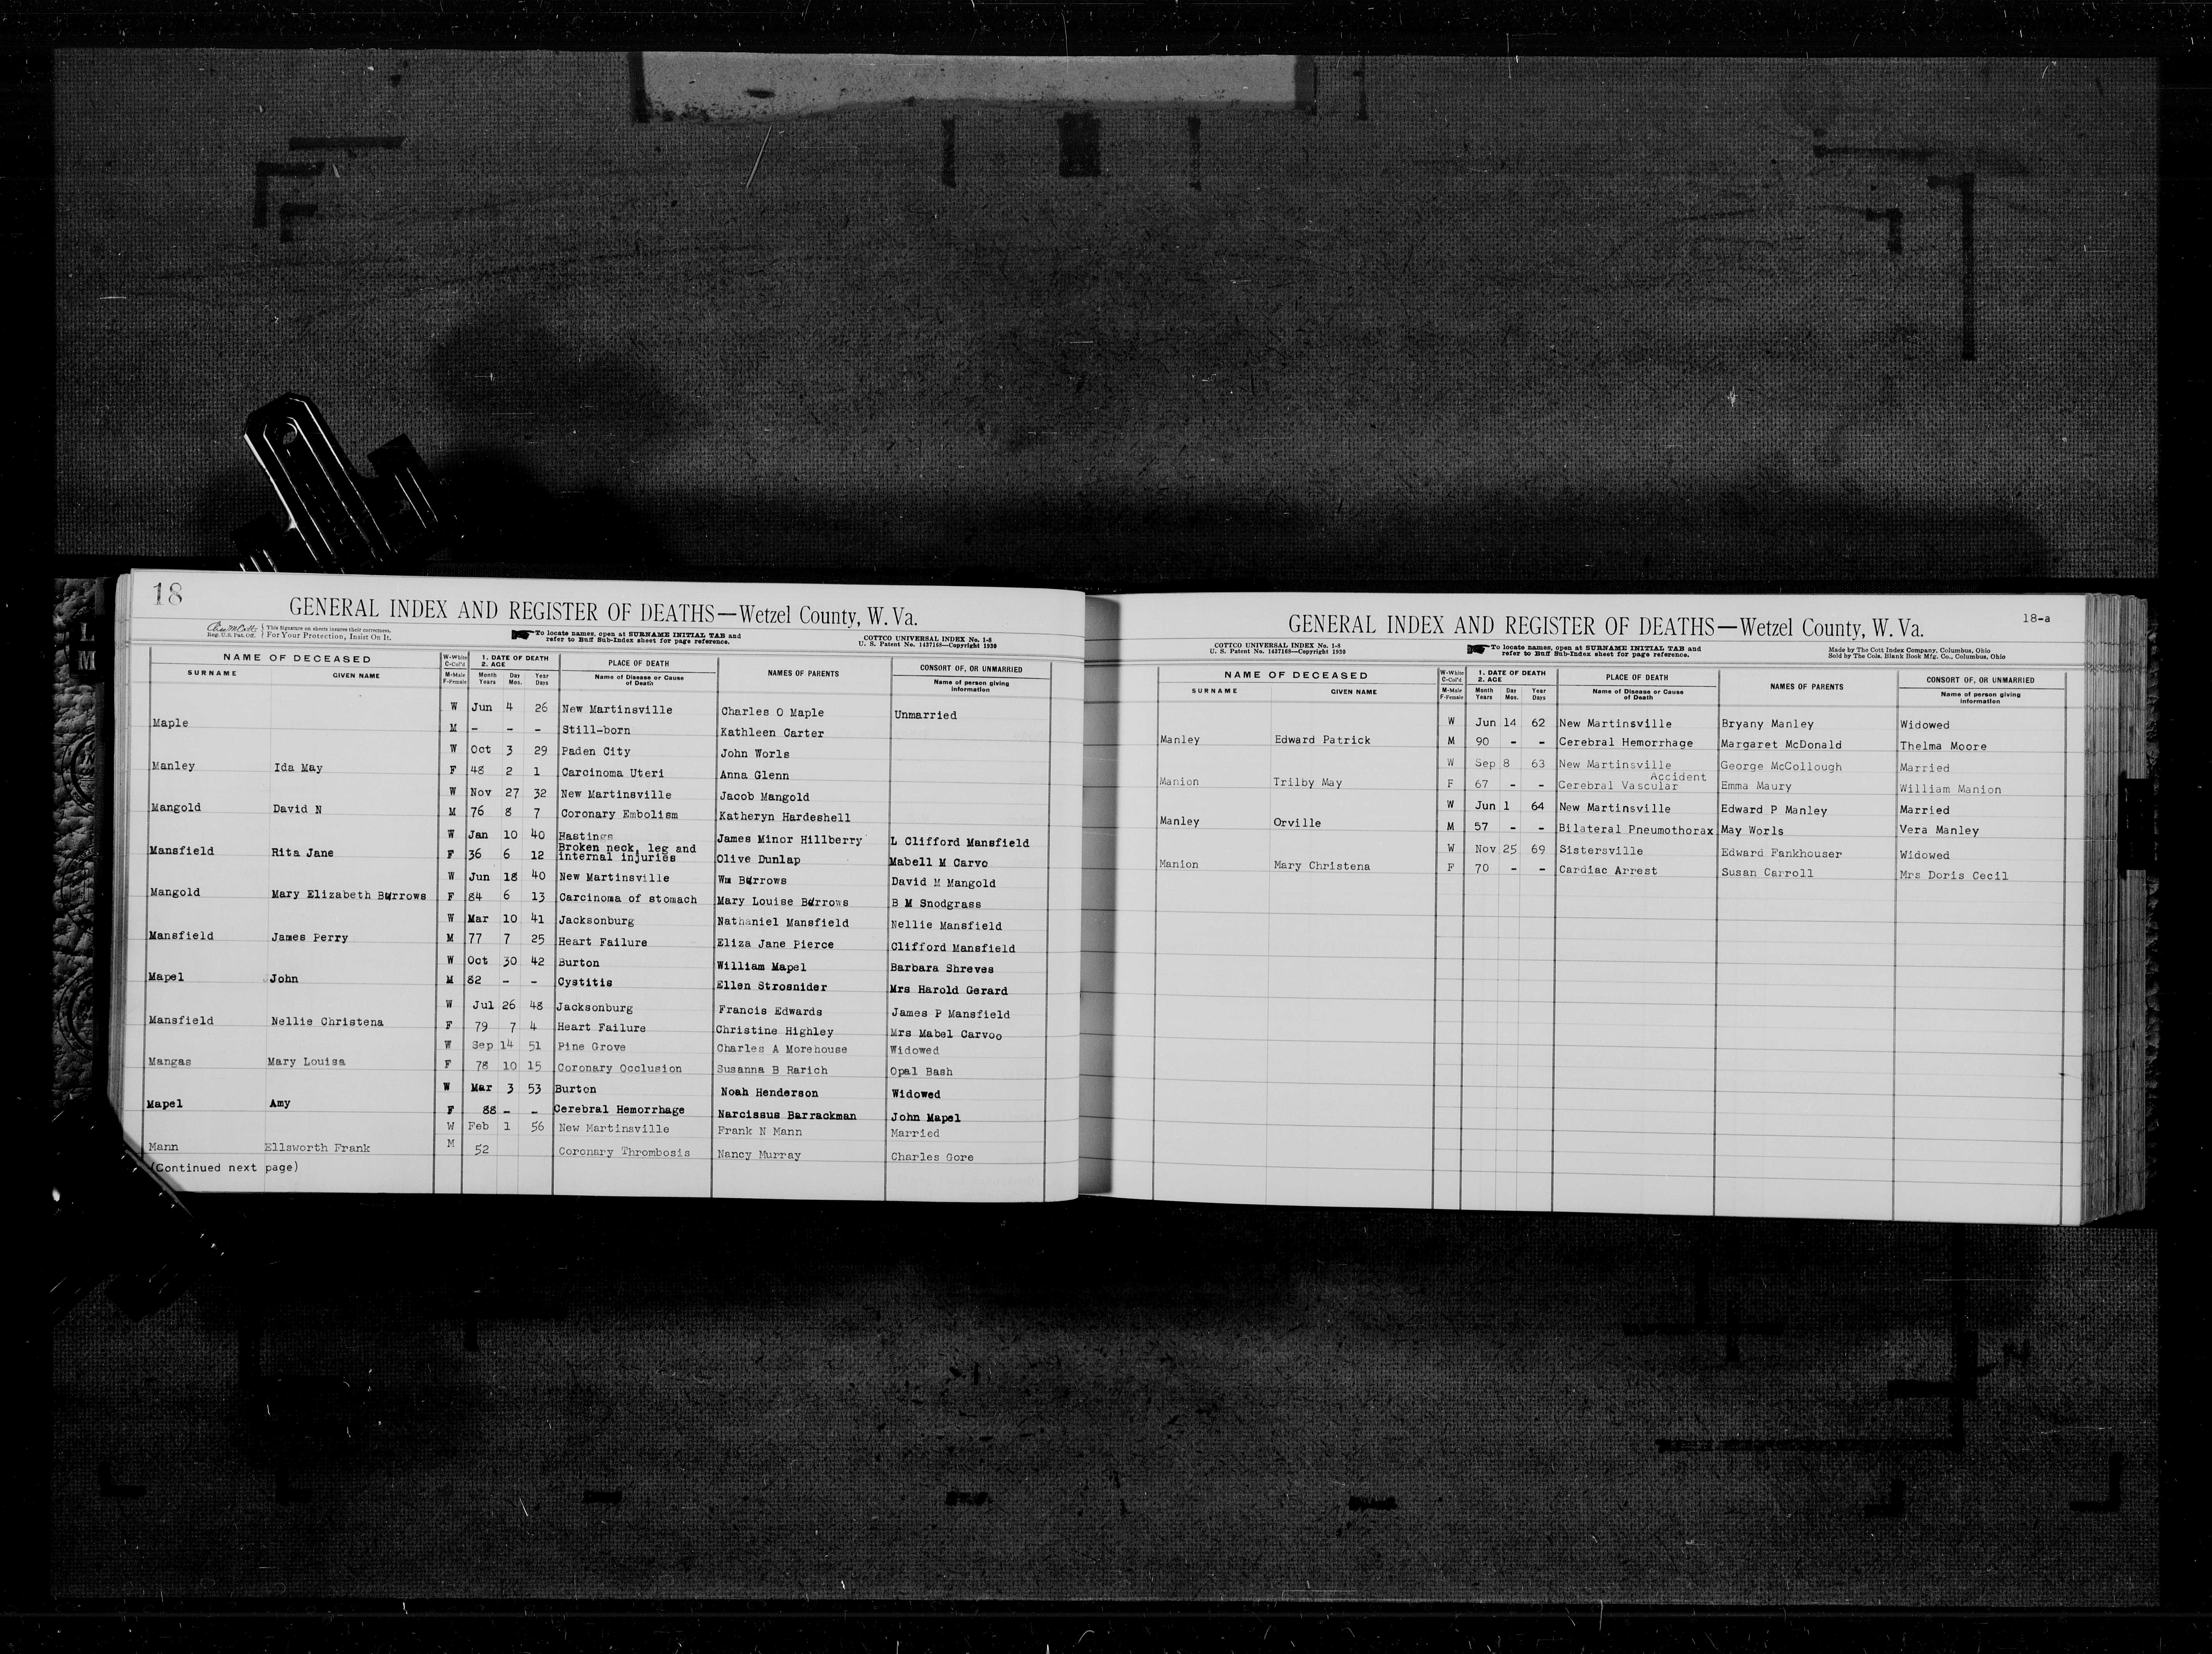 18
GENERAL INDEX AND REGISTER OF DEATHS—Wetzel County, W. Va.
Reg. U.S. Pat. Off. { This Signature on sheets insures their correctness. For Your Protection, Insist On It.
To locate names, open at SURNAME INITIAL TAB and refer to Buff Sub-Index sheet for page reference.
COTTCO UNIVERSAL INDEX No. 1-8
U. S. Patent No. 1437168—Copyright 1930
NAME OF DECEASED W-White C-Col'd 1. DATE OF DEATH 2. AGE PLACE OF DEATH NAMES OF PARENTS CONSORT OF, OR UNMARRIED
SURNAME GIVEN NAME M-Male F-Female Month Years Day Mos. Year Days Name of Disease or Cause of Death Name of person giving information
W Jun 4 26 New Martinsville Charles O Maple Unmarried
Maple M - - - Still-born Kathleen Carter
W Oct 3 29 Paden City John Worls
Manley Ida May F 48 2 1 Carcinoma Uteri Anna Glenn
W Nov 27 32 New Martinsville Jacob Mangold
Mangold David N M 76 8 7 Coronary Embolism Katheryn Hardeshell
W Jan 10 40 Hastings James Minor Hillberry L Clifford Mansfield
Mansfield Rita Jane F 36 6 12 Broken neck, leg and internal injuries Olive Dunlap Mabell M Carvo
W Jun 18 40 New Martinsville Wm Burrows David M Mangold
Mangold Mary Elizabeth Burrows F 84 6 13 Carcinoma of stomach Mary Louise Burrows B M Snodgrass
W Mar 10 41 Jacksonburg Nathaniel Mansfield Nellie Mansfield
Mansfield James Perry M 77 7 25 Heart Failure Eliza Jane Pierce Clifford Mansfield
W Oct 30 42 Burton William Mapel Barbara Shreves
Mapel John M 82 - - Cystitis Ellen Strosnider Mrs Harold Gerard
W Jul 26 48 Jacksonburg Francis Edwards James P Mansfield
Mansfield Nellie Christena F 79 7 4 Heart Failure Christine Highley Mrs Mabel Carvoo
W Sep 14 51 Pine Grove Charles A Morehouse Widowed
Mangas Mary Louisa F 78 10 15 Coronary Occlusion Susanna B Rarich Opal Bash
W Mar 3 53 Burton Noah Henderson Widowed
Mapel Amy F 88 - - Cerebral Hemorrhage Narcissus Barrackman John Mapel
W Feb 1 56 New Martinsville Frank N Mann Married
Mann Ellsworth Frank M 52 Coronary Thrombosis Nancy Murray Charles Gore
(Continued next page)
18-a
GENERAL INDEX AND REGISTER OF DEATHS—Wetzel County, W. Va.
COTTCO UNIVERSAL INDEX No. 1-8
U. S. Patent No. 1437168—Copyright 1930
To locate names, open at SURNAME INITIAL TAB and refer to Buff Sub-Index sheet for page reference.
Made by The Cott Index Company, Columbus, Ohio
Sold by The Cols. Blank Book Mfg. Co., Columbus, Ohio
NAME OF DECEASED W-White C-Col'd 1. DATE OF DEATH 2. AGE PLACE OF DEATH NAMES OF PARENTS CONSORT OF, OR UNMARRIED
SURNAME GIVEN NAME M-Male F-Female Month Years Day Mos. Year Days Name of Disease or Cause of Death Name of person giving information
W Jun 14 62 New Martinsville Bryany Manley Widowed
Manley Edward Patrick M 90 - - Cerebral Hemorrhage Margaret McDonald Thelma Moore
W Sep 8 63 New Martinsville George McCollough Married
Manion Trilby May F 67 - - Cerebral Vascular Accident Emma Maury William Manion
W Jun 1 64 New Martinsville Edward P Manley Married
Manley Orville M 57 - - Bilateral Pneumothorax May Worls Vera Manley
W Nov 25 69 Sistersville Edward Fankhouser Widowed
Manion Mary Christena F 70 - - Cardiac Arrest Susan Carroll Mrs Doris Cecil
L
M